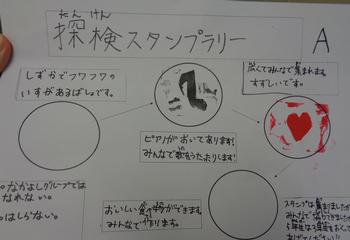 たんけん
探検スタンプラリー
A
しずかでフワフワの
いすがあるばしょです。
広くてみんなで集まれます。
すずしいです。
ピアノがおいてあります!
みんなで歌をうたったりします!
おいしい食べ物ができます。
みんなで作ります。
なかよしグループでは
なれない。
はしらない。
スタンプは集まりましたか